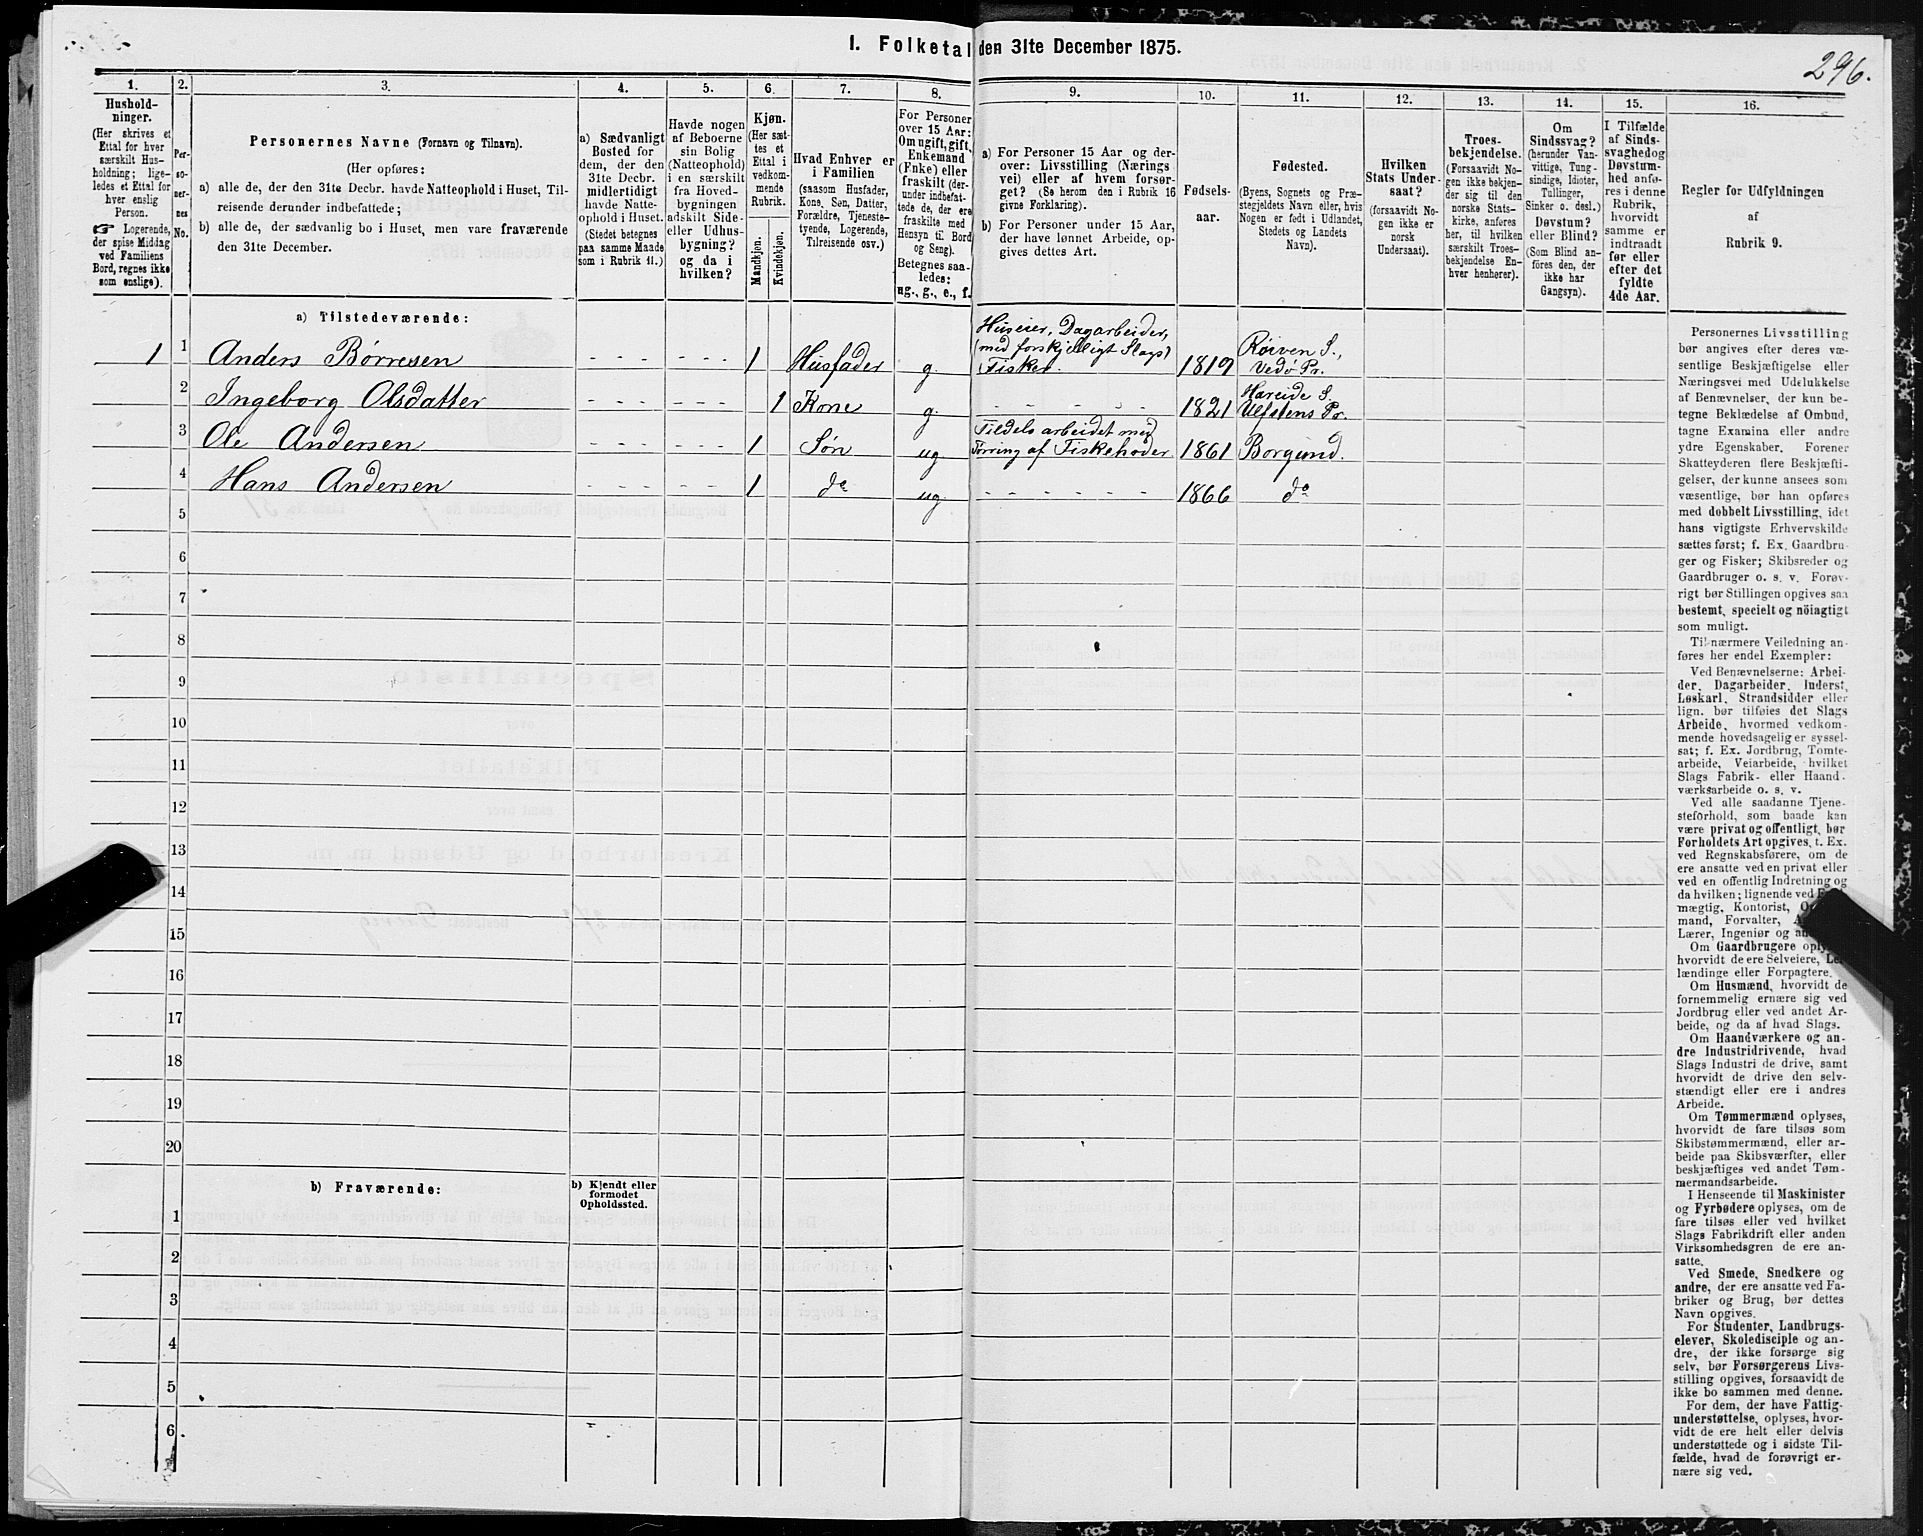 I. Folketal den 31te December 1875.
296.
1.
Hushold-
ninger.
(Her skrives et
Ettal for hver
særskilt Hus-
holdning; lige-
ledes et Ettal for
hver enslig
Person.
☞ Logerende,
der spise Middag
ved Familiens
Bord, regnes ikke
som enslige).
2.
Per-
so-
ner-
nes
No.
3.
Personernes Navne (Fornavn og Tilnavn).
(Her opføres:
a) alle de, der den 31te Decbr. havde Natteophold i Huset, Til-
reisende derunder indbefattede;
b) alle de, der sædvanlig bo i Huset, men vare fraværende
den 31te December.
4.
a) Sædvanligt
Bosted for
dem, der den
31te Decbr.
midlertidigt
havde Natte-
ophold i Huset.
(Stedet betegnes
paa samme Maade
som i Rubrik 11.)
5.
Havde nogen
af Beboerne
sin Bolig
(Natteophold)
i en særskilt
fra Hoved-
bygningen
adskilt Side-
eller Udhus-
bygning?
og da i
hvilken?
6.
Kjøn.
(Her sæt-
tes et
Ettal i
vedkom-
mende
Rubrik.
Mandkjøn.
Kvindekjøn.
7.
Hvad Enhver er
i Familien
(saasom Husfader,
Kone, Søn, Datter,
Forældre, Tjeneste-
tyende, Logerende,
Tilreisende osv.)
8.
For Personer
over 15 Aar:
Om ugift, gift,
Enkemand
(Enke) eller
fraskilt (der-
under indbefat-
tede de, der ere
fraskilte med
Hensyn til Bord
og Seng).
Betegnes saa-
ledes:
ug., g., e., f.
9.
a) For Personer 15 Aar og der-
over: Livsstilling (Nærings
vei) eller af hvem forsør-
get? (Se herom den i Rubrik 16
givne Forklaring).
b) For Personer under 15 Aar,
der have lønnet Arbeide, op-
gives dettes Art.
10.
Fødsels-
aar.
11.
Fødested.
(Byens, Sognets og Præ-
stegjeldets Navn eller, hvis
Nogen er født i Udlandet,
Stedets og Landets
Navn).
12.
Hvilken
Stats Under-
saat?
(forsaavidt No-
gen ikke er
norsk
Undersaat).
13.
Troes-
bekjendelse.
(Forsaavidt No-
gen ikke bekjen-
der sig til den
norske Stats-
kirke, anføres
her, til hvilken
særskilt Troes-
bekjendelse En-
hver henhører).
14.
Om
Sindssvag?
(herunder Van-
vittige, Tung-
sindige, Idioter,
Tullinger,
Sinker o. desl.)
Døvstum?
eller Blind?
(Som Blind an-
føres den, der
ikke har
Gangsyn).
15.
I Tilfælde
af Sinds-
svaghed og
Døvstum-
hed anfø-
res i denne
Rubrik,
hvorvidt
samme er
indtraadt
før eller
efter det
fyldte
4de Aar.
16.
Regler for Udfyldningen
af
Rubrik 9.
a) Tilstedeværende:
1 1 Anders Børresen - - - - - - 1 Husfader g. Huseier, Dagarbeider, (med forskjelligt Slags) Fisker. 1819 S., Vedø Pr.
2 Ingeborg Olsdatter - - - - - - 1 Kone g. - - - - - 1821 Hareide S. Ulfstens Pr.
3 Ole Andersen - - - - - - 1 Søn ug Tildels arbeidet med Tørring af Fiskehoder 1861 Borgund.
4 Hans Andersen - - - - - - 1 do ug - - - - - - 1866 do
5
6
7
8
9
10
11
12
13
14
15
16
17
18
19
20
b) Fraværende:
b) Kjendt eller
formodet
Opholdssted.
1
2
3
4
5
6
Personernes Livsstilling
bør angives efter deres væ-
sentlige Beskjæftigelse eller
Næringsvei med Udelukkelse
af Benævnelser, der kun be-
tegne Beklædelse af Ombud,
tagne Examina eller andre
ydre Egenskaber. Forener
Skatteyderen flere Beskjæfti-
gelser, der kunne ansees som
væsentlige, bør han opføres
med dobbelt Livsstilling, idet
hans vigtigste Erhvervskilde
sættes først; f. Ex. Gaardbru-
ger og Fisker; Skibsreder og
Gaardbruger o. s. v. Forøv-
rigt bør Stillingen opgives saa
bestemt, specielt og nöiagtigt
som muligt.
Til nærmere Veiledning an-
føres her endel Exempler:
Ved Benævnelserne: Arbei-
der, Dagarbeider, Inderst,
Løskarl, Strandsidder eller
lign. bør tilføies det Slags
Arbeide, hvormed vedkom-
mende hovedsagelig er syssel-
sat; f. Ex. Jordbrug, Tomte-
arbeide, Veiarbeide, hvilket
Slags Fabrik- eller Haand-
værksarbeide o. s. v.
Ved alle saadanne Tjene-
steforhold, som baade kan
være privat og offentligt, bør
Forholdets Art opgives, f. Ex.
ved Regnskabsførere, om de
ere ansatte ved en privat eller
ved en offentlig Indretning og
da hvilken; lignende ved
mægtig, Kontorist,
mand, Forvalter,
Lærer, Ingeniør og
Om Gaardbrugere
hvorvidt de ere Selveiere,
lændinge eller Forpagtere.
Om Husmænd, hvorvidt de
fornemmelig ernære sig ved
Jordbrug eller ved andet Ar-
beide, og da af hvad Slags.
Om Haandværkere og an-
dre Industridrivende, hvad
Slags Industri de drive, samt
hvorvidt de drive den selv-
stændigt eller ere i andres
Arbeide.
Om Tømmermænd oplyses,
hvorvidt de fare tilsøs som
Skibstømmermænd, eller ar-
beide paa Skibsværfter, eller
beskjæftiges ved andet Tøm-
mermandsarbeide.
I Henseende til Maskinister
og Fyrbødere oplyses, om de
fare tilsøs eller ved hvilket
Slags Fabrikdrift eller anden
Virksomhedsgren de ere an-
satte.
Ved Smede, Snedkere og
andre, der ere ansatte ved Fa-
briker og Brug, bør dettes
Navn opgives.
For Studenter, Landbrugs-
elever, Skoledisciple og an-
dre, der ikke forsørge sig
selv, bør Forsørgerens Livs-
stilling opgives, forsaavidt de
ikke bo sammen med denne.
For dem, der have Fattig-
understøttelse, oplyses, hvor-
vidt de ere helt eller delvis
understøttede og i sidste Til-
fælde, hvad de forøvrigt er-
nære sig ved.